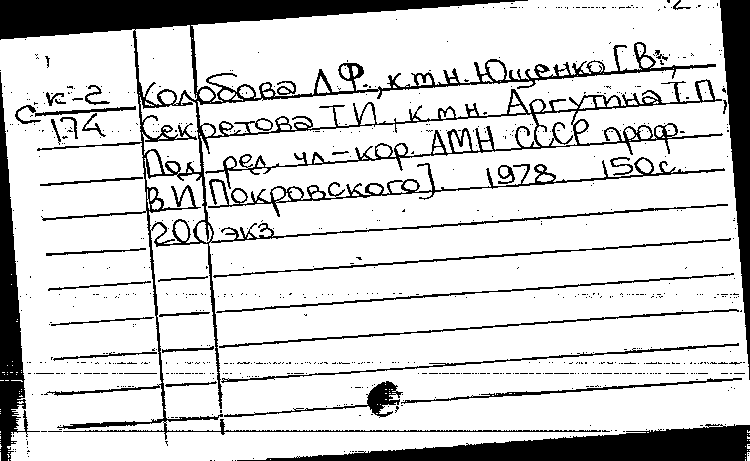 2
к-2 Колобова Л.Ф., к.т.н. Ющенко Г.В.,
С 174 Секретова Т.И., к.т.н. Аргутина Т.П;
Под ред. чл-кор. АМН СССР проф.
В.И. Покровского]. 1978. 150с.
200 экз